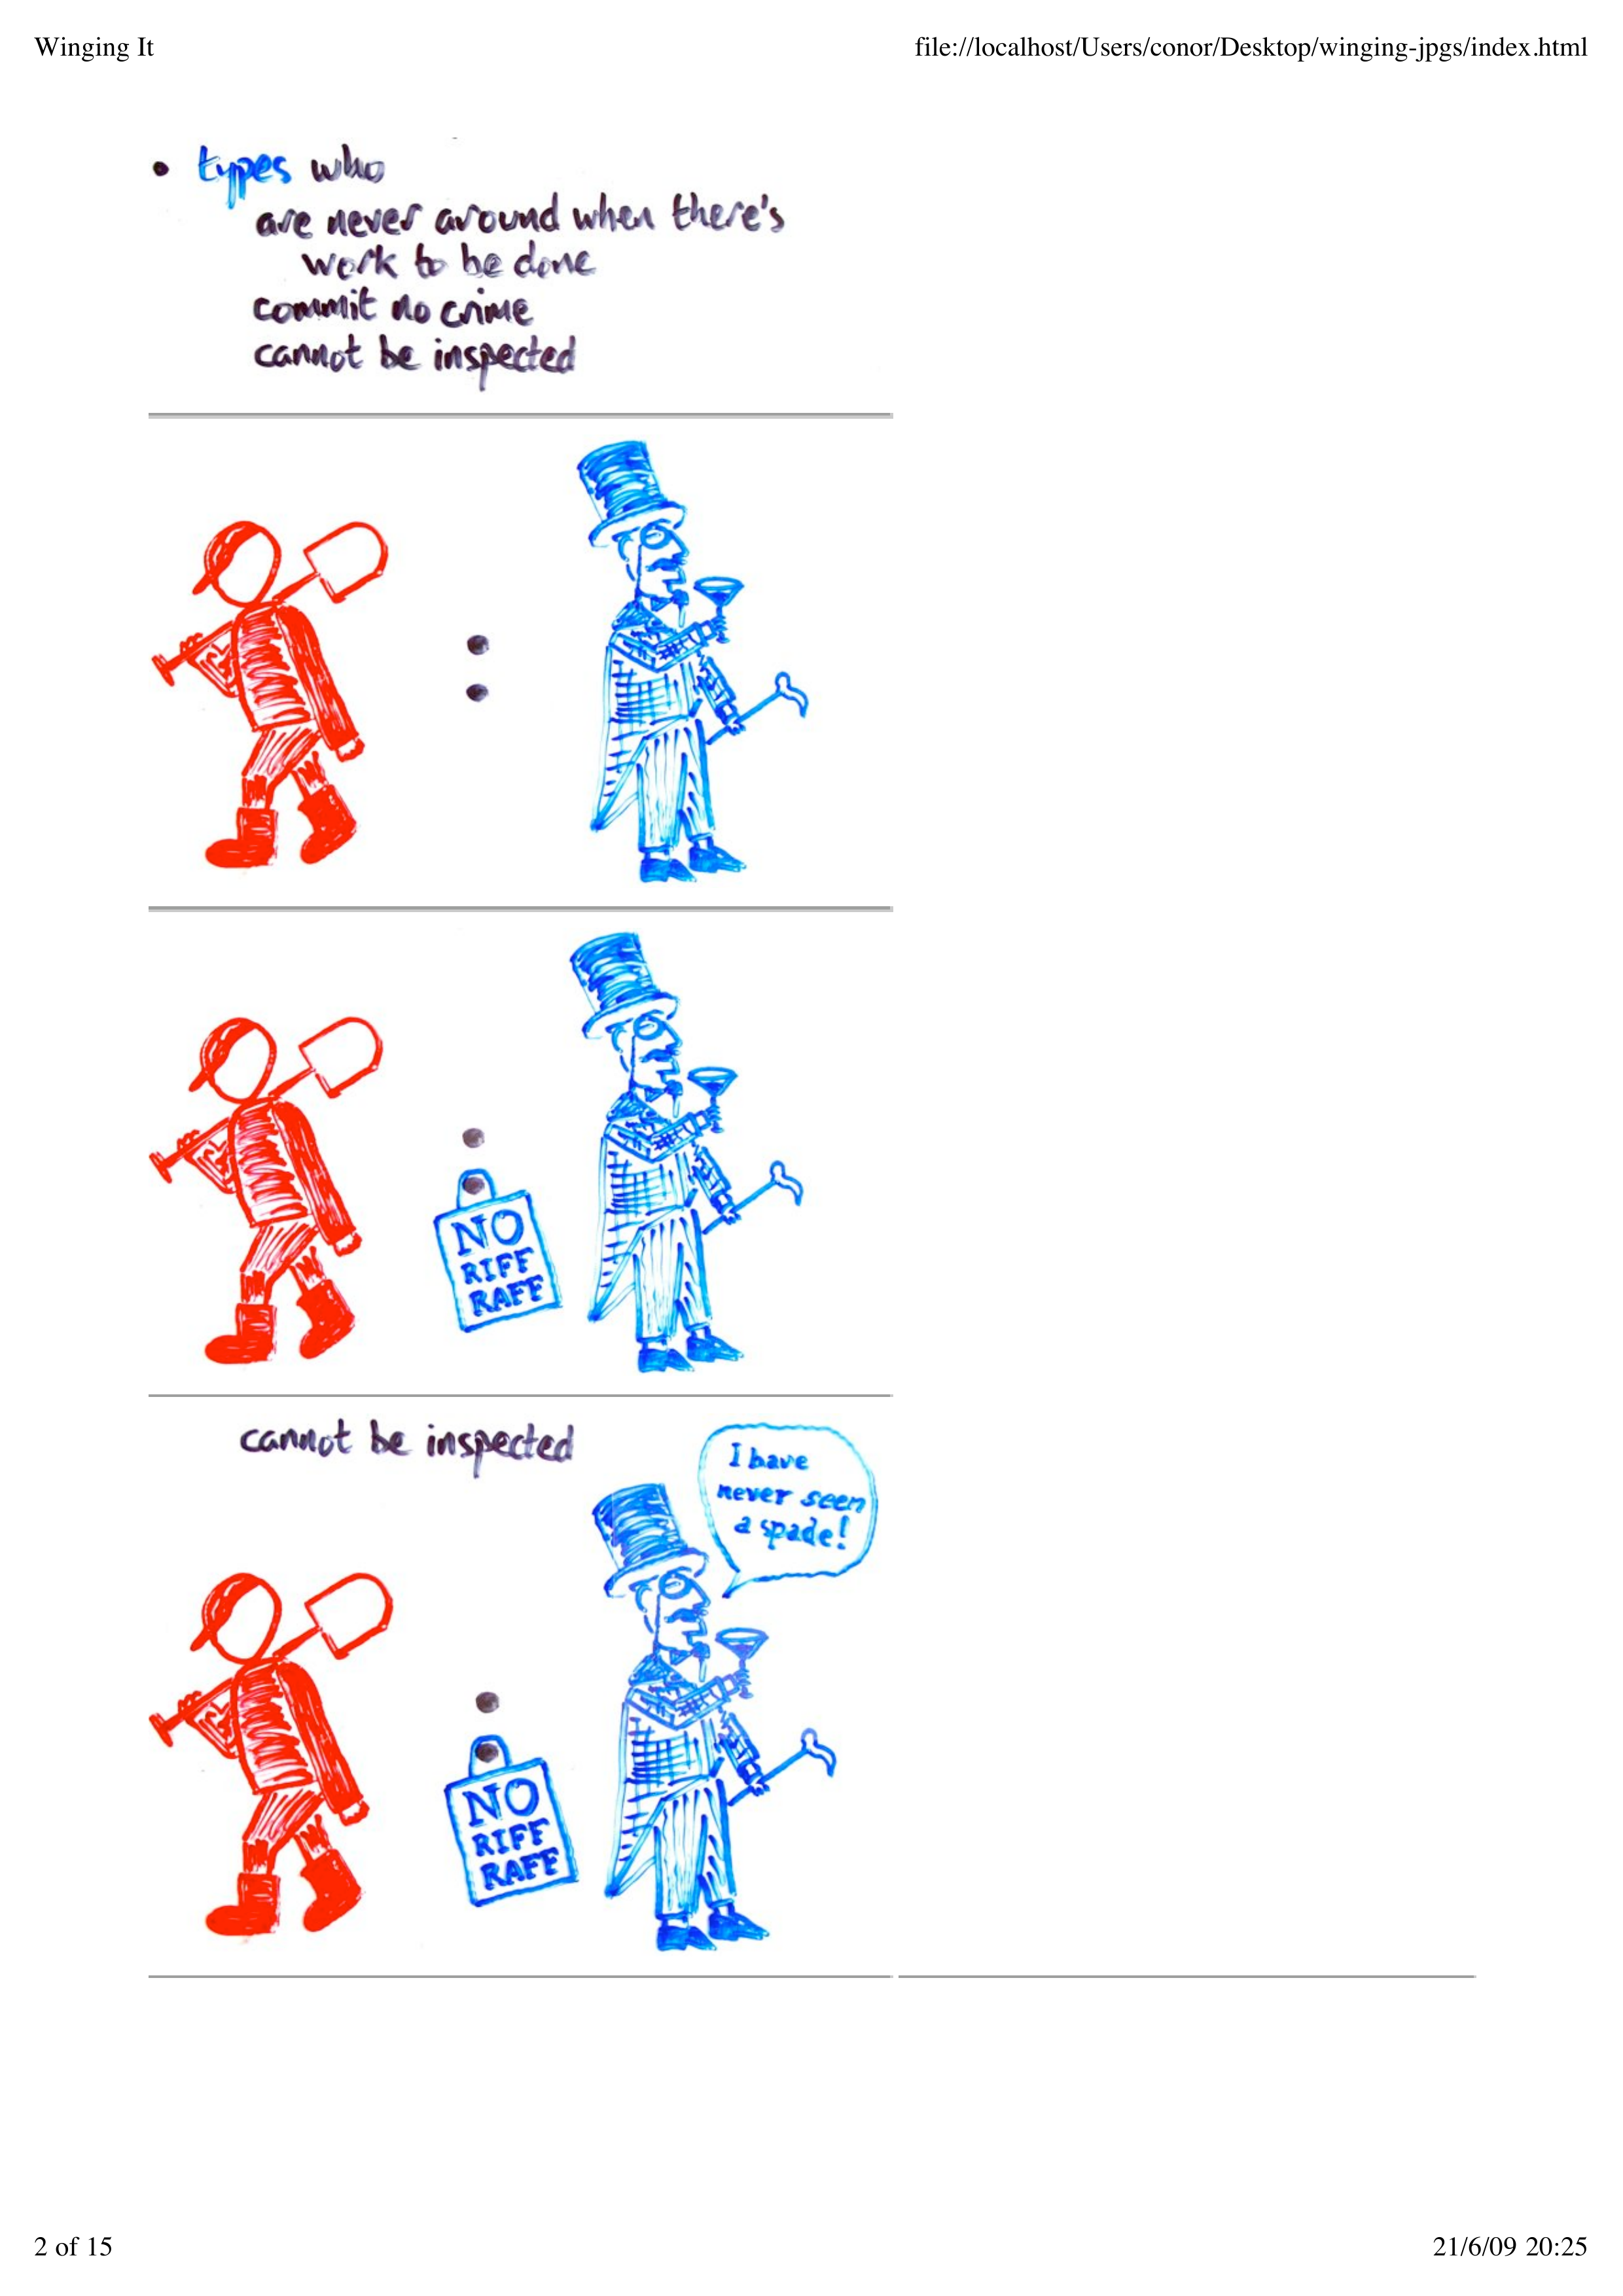 Winging It
file://localhost/Users/conor/Desktop/winging-jpgs/index.html
• types who
are never around when there's
work to be done
commit no crime
cannot be inspected
:
NO
RIFF
RAFF
cannot be inspected
I have
never seen
a spade!
NO
RIFF
RAFF
2 of 15
21/6/09 20:25